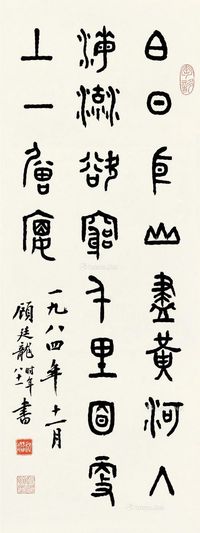 白日依山盡黃河入
海流欲窮千里目更
上一層樓
一九八四年十一月
顧廷龍時年八十一書